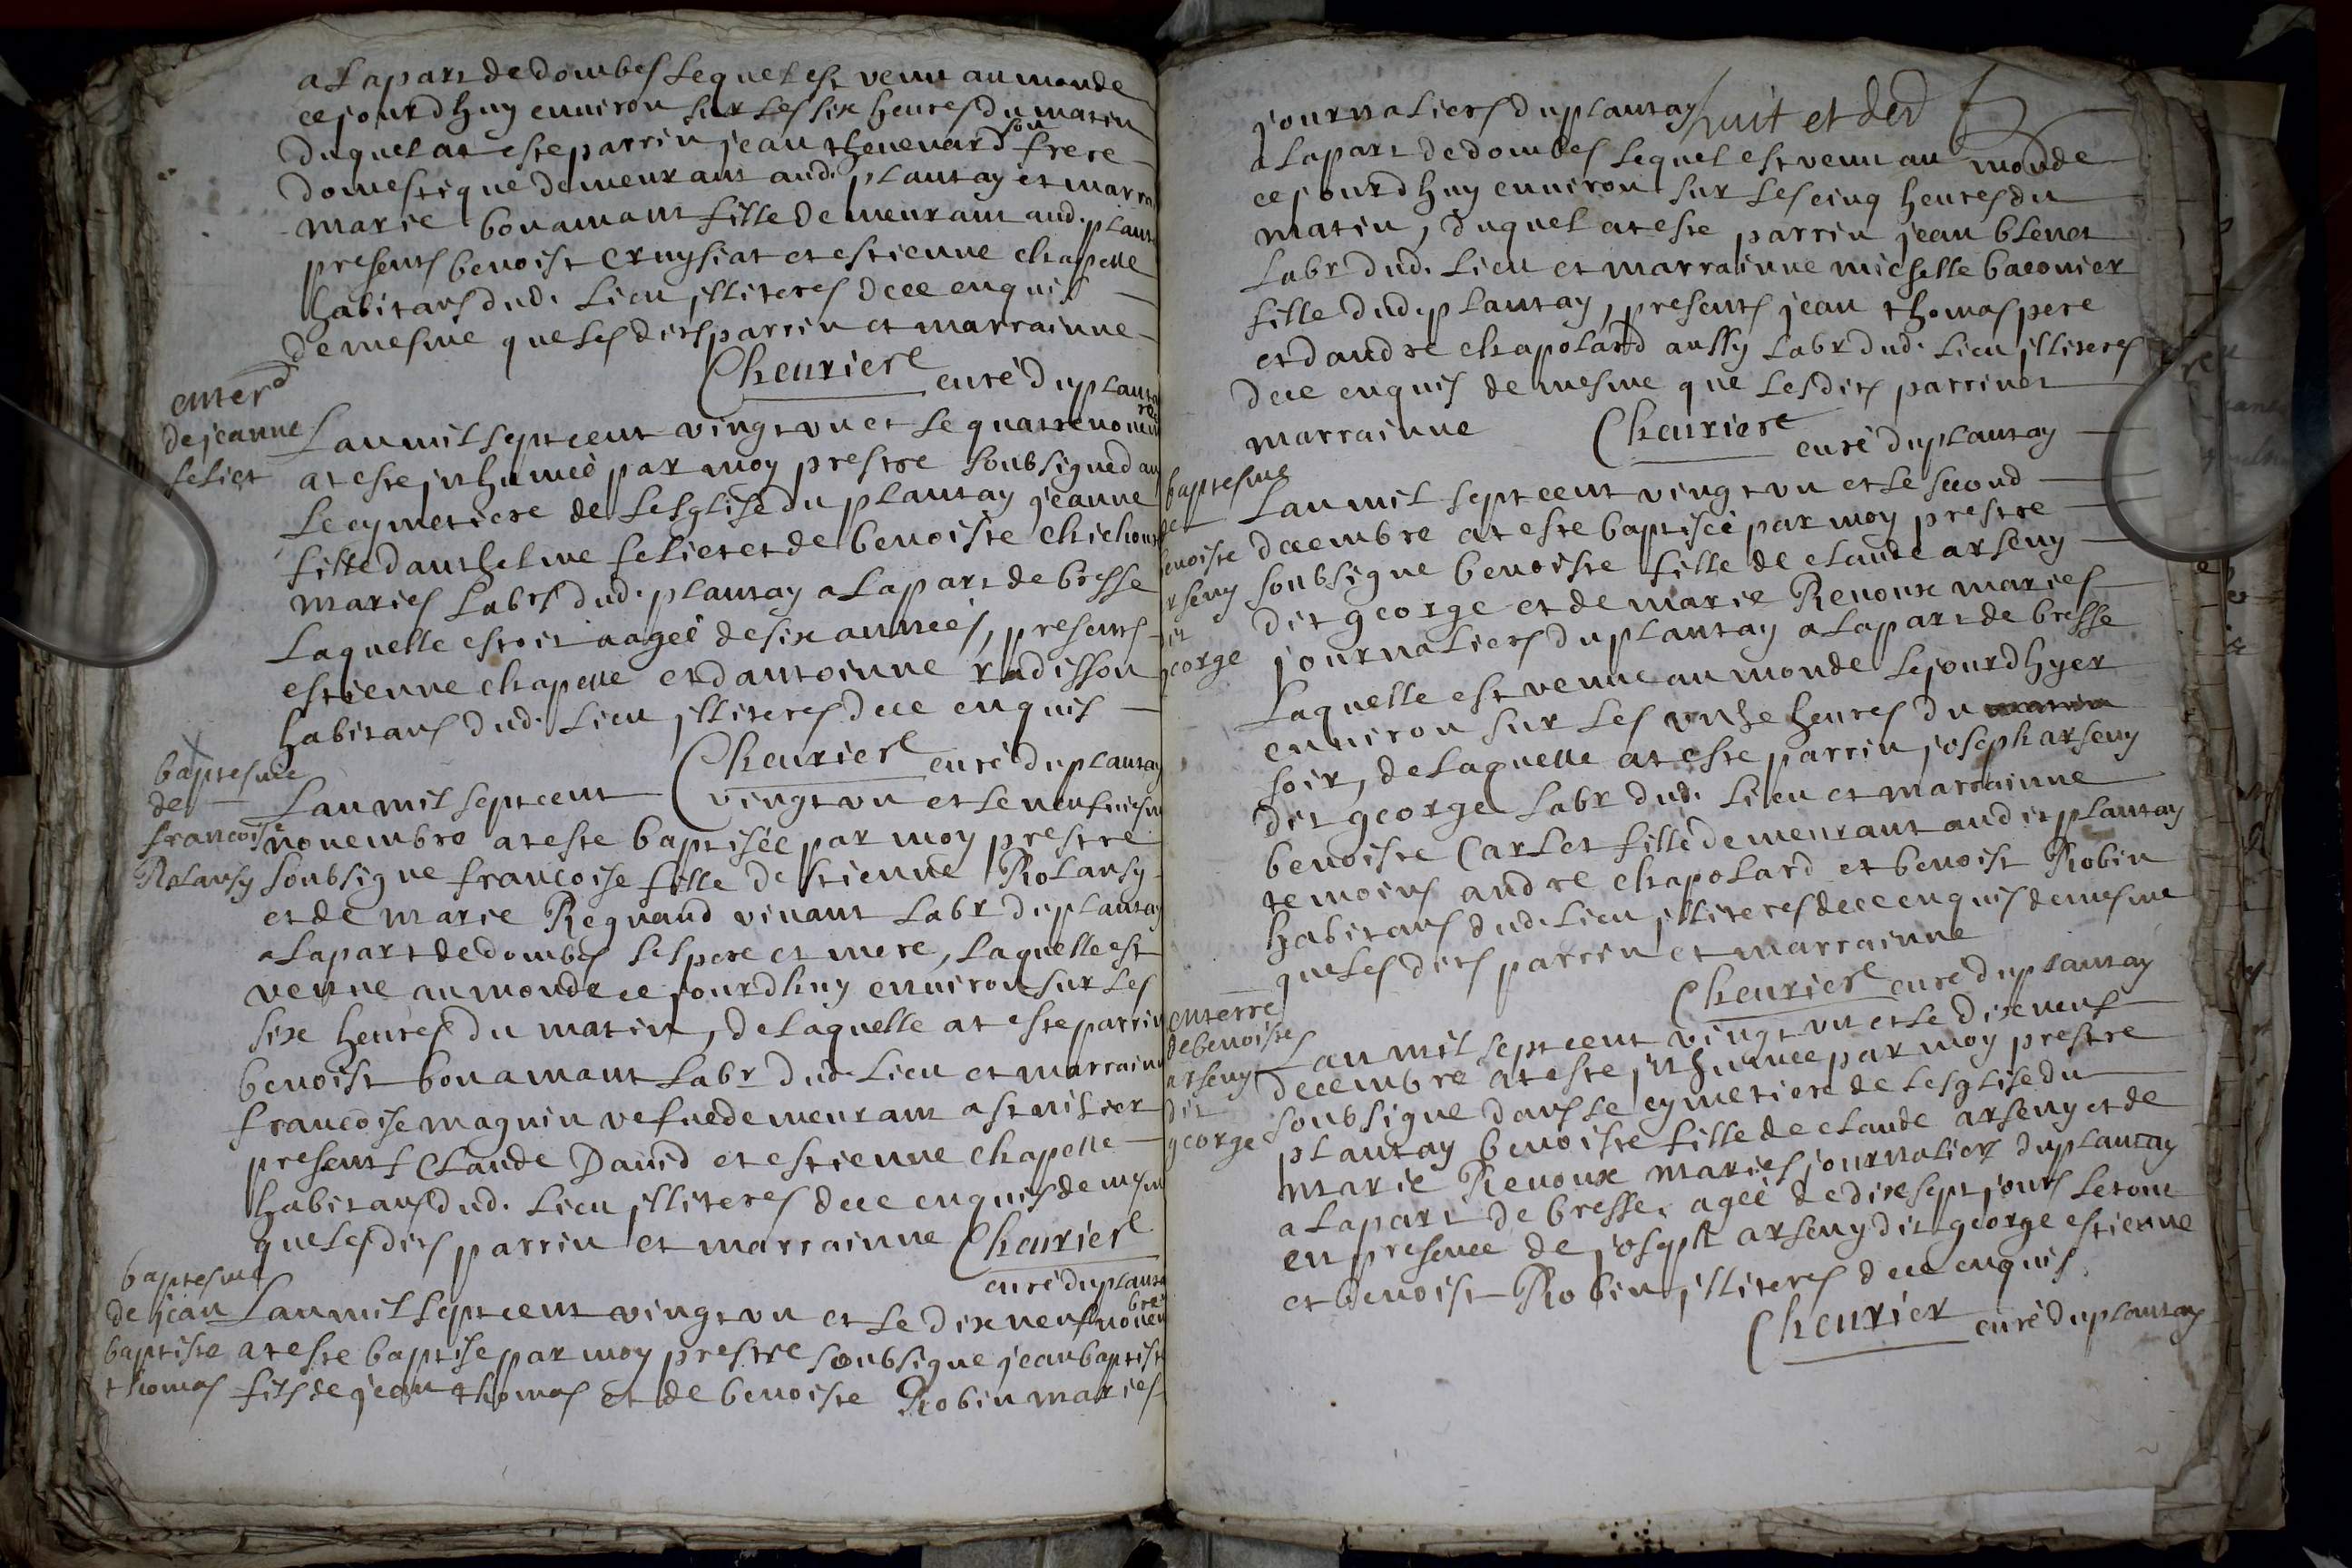 a la part de dombes lequel est venu au monde
ce jourdhuy enuiron sur les six heures du matin
duquel at esté parrin jean theuenard son frere
domestique demeurant aud. plantay et marr
marie bonamant fille demeurant aud. plant
presents benoist cruysiat et estienne chapelle
habitans dud. lieu jlliteres de ce enquis
de mesme que lesdits parrin et marrainne
Cheurier curé du planta
enterd
de jeanne
feliet
Lan mil sept cent vingt vn et le quatre nouem re
at esté jnhumeé par moy prestre soubsigné dan
le cymetiere de lesglise du plantay jeanne
fille danthelme feliet et de benoiste chichou
mariés labrs dud. plantay a la part de bresse
laquelle estoit aageé de six anneés, presents
estienne chapelle et dantoinne radisson
habitans dud. lieu jlliteres de ce enquis
Cheurier curé du plantay
baptesme
de
francoise
Rolansy
Lan mil sept cent vingt vn et le neufuiesm
nouembre at esté baptisée par moy prestre
soubsigné francoise fille destienne Rolansy
et de marie Regnaud viuant labr du plantay
a la part de dombes ses pere et mere, laquelle est
venue au monde ce jourdhuy enuiron sur les
six heures du matin, de laquelle at esté parrin
benoist bonamant labr dud. lieu et marrainn
francoise magnin vefue demeurant a st niзier
presents Claude Dauid et estienne chapelle
habitans dud. lieu jlliteres de ce enquis de mesm
que lesdits parrin et marrainne Cheurier
curé du planta
baptesme
de jean
baptiste
thomas
Lan mil sept cent vingt vn et le dix neuf nouem bre
at esté baptisé par moy prestre soubsigné jean baptist
fils de jean thomas et de benoiste Robin mariés
journaliers du plantay huit et der
a la part de dombes lequel est venu au monde
ce jourdhuy enuiron sur les cinq heures du
matin, duquel at esté parrin jean blenet
labr dud. lieu et marrainne michelle baconier
fille dud. plantay, presents jean thomas pere
et dandré chapolard aussy labr dud. lieu jlliteres
de ce enquis de mesme que lesdits parrin et
marrainne Cheurier curé du plantay
baptesme
de
enoiste
rseny
dit
george
Lan mil sept cent vingt vn et le second
decembre at esté baptiseé par moy prestre
soubsigné benoiste fille de claude arseny
dit george et de marie Renoux mariés
journaliers du plantay a la part de bresse
laquelle est venue au monde le jourdhyer
enuiron sur les vnze heures du matin
soir, de laquelle at esté parrin joseph arseny
dit george labr dud. lieu et marrainne
benoiste Carlet fille demeurant audit plantay
temoins andré chapolard et benoist Robin
habitans dud. lieu jlliteres de ce enquis de mesme
que lesdits parrin et marrainne
Cheurier curé du plantay
enterré
de benoiste
arseny
dit
george
Lan mil sept cent vingt vn et le dix neuf
decembre at esté jnhumeé par moy prestre
soubsigné dans le cymetiere de lesglise du
plantay benoiste fille de claude arseny et de
marie Renoux mariés journalier du plantay
a la part de bresse, ageé de dix sept jours le tout
en presence de joseph arseny dit george estienne
et benoist Robin jlliteres de ce enquis
Cheurier curé du plantay